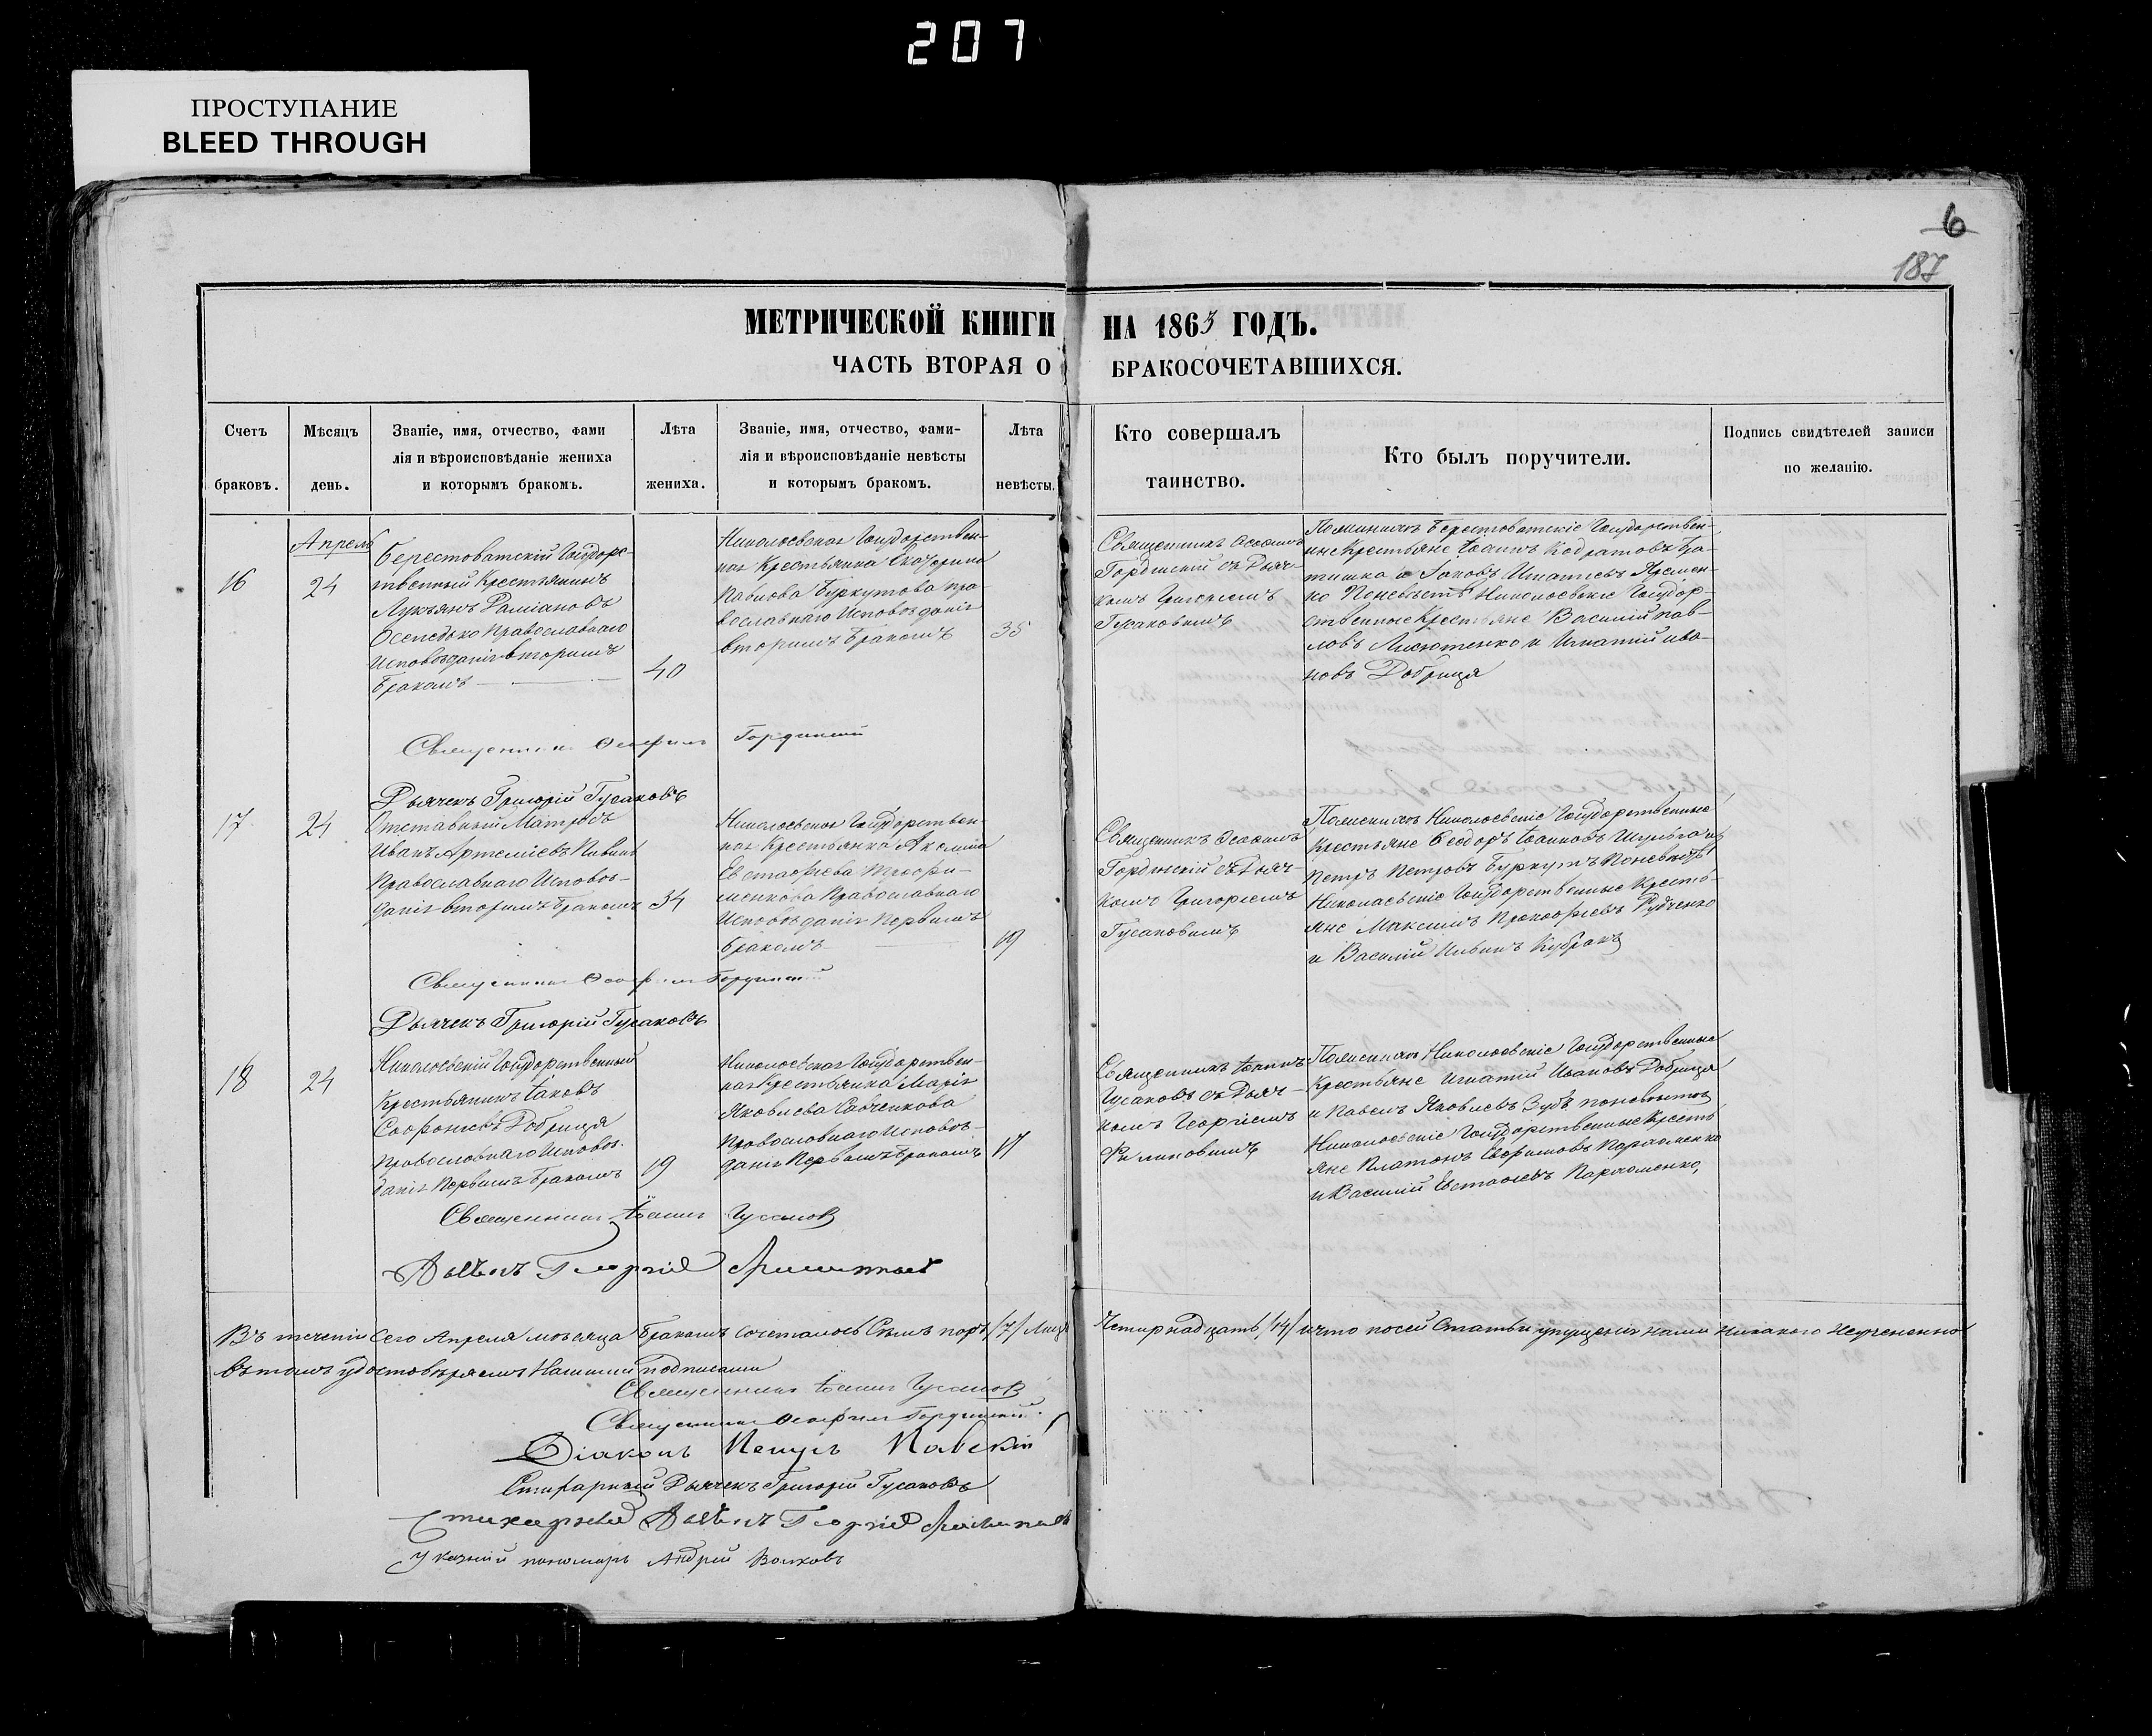 207
ПРОСТУПАНИЕ
BLEED THROUGH
6
187
МЕТРИЧЕСКОЙ КНИГИ НА 1863 ГОДЪ.
ЧАСТЬ ВТОРАЯ О БРАКОСОЧЕТАВШИХСЯ.
Счетъ браковъ.
Мѣсяцъ день.
Званіе, имя, отчество, фами
лія и вѣроисповѣданіе жениха
и которымъ бракомъ.
Лѣта жениха.
Званіе, имя, отчество, фами-
лія и вѣроисповѣданіе невѣсты
и которымъ бракомъ.
Лѣта невѣсты.
Кто совершалъ
таинство.
Кто былъ поручители.
Подпись свидѣтелей записи
по желанію.
Апреля
16
24
Берестоватскій Государс-
твенный Крестьянинъ
Лукьянъ Даміановъ
Православнаго
Исповѣданія вторимъ
Бракомъ
40
Николаевская Государствен-
ная Крестьянка Екатерина
Павлова Буркутова Пра-
вославнаго Исповѣданія
вторимъ Бракомъ
35
Священникъ Ѳеофилъ
Гординскій съ Дьяч-
комъ Григоріемъ
Гусаковимъ
Пожениху Берестоватскіе Государствен-
ные Крестьяне Іоаннъ
и Іаковъ Игнатіевъ Яремен-
ко Поневѣсте Николаевскіе Государ-
ственные Крестьяне Василій Пав-
ловъ и Игнатій Ива-
новъ Добрица
Священникъ Ѳеофилъ Гординскій
Дьячекъ Григорій Гусаковъ
17
24
Отставный Матросъ
Иванъ Артеміевъ
Православнаго Исповѣ-
данія вторимъ Бракомъ
34
Николаевская Государствен-
ная Крестьянка Акилина
Евстафіева Трофи-
менкова Православнаго
Исповѣданія Первимъ
Бракомъ
19
Священникъ Ѳеофилъ
Гординскій съ Дьяч-
комъ Григоріемъ
Гусаковимъ
Пожениху Николаевскіе Государственные
Крестьяне Ѳеодоръ Іоанновъ Шульга и
Петръ Петровъ Буркутъ Поневѣсте
Николаевскіе Государственные Кресть-
яне Максимъ Прокофіевъ Рудченко
и Василій Кубракъ
Священникъ Ѳеофилъ Гординскій
Дьячекъ Григорій Гусаковъ
18
24
Николаевскій Государственный
Крестьянинъ Іаковъ
Софоніевъ Добрица
Православнаго Исповѣ-
данія Первимъ Бракомъ
19
Николаевская Государствен-
ная Крестьянка Марія
Яковлева Савченкова
Православнаго Исповѣ-
данія Первимъ Бракомъ
17
Священникъ Іоаннъ
Гусаковъ съ Дьяч-
комъ Георгіемъ
Пожениху Николаевскіе Государственные
Крестьяне Игнатій Ивановъ Добрица
и Павелъ Яковлевъ Зубъ поневѣсте
Николаевскіе Государственные Кресть
яне Платонъ Евфимовъ Пархоменко
и Василій Евстафіевъ Пархоменко,
Священникъ Іоаннъ Гусаковъ
Дьячекъ Георгій
Въ теченіи Сего Апреля мѣсяца Бракомъ сочеталось Семъ поръ /7/ Лицъ Четирнадцать /14/ и что посей Статьи упущенія нами никакого
въ томъ удостовѣряемъ Нашими подписами
Священникъ Іоаннъ Гусаковъ
Священникъ Ѳеофилъ Гординскій
Діаконъ Павскій
Стихарный Дьячекъ Григорій Гусаковъ
Стихарный Дьячекъ Георгій
Указній пономарь Андрей Волковъ